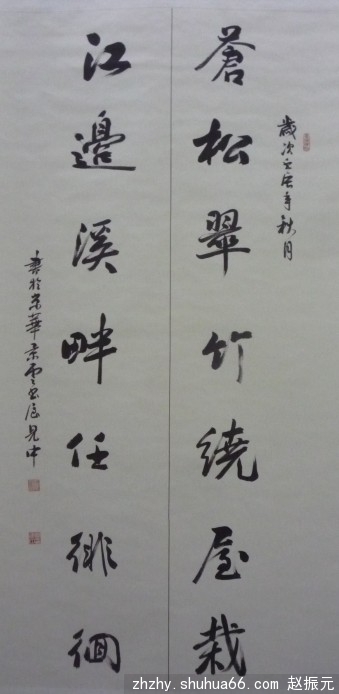 歲次壬辰年秋月
蒼松翠竹繞屋栽
江邊溪畔任徘徊
書於京華
zhzhy.shuhua66.com 赵振元